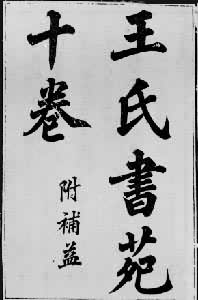 王氏書苑
十卷
附補益